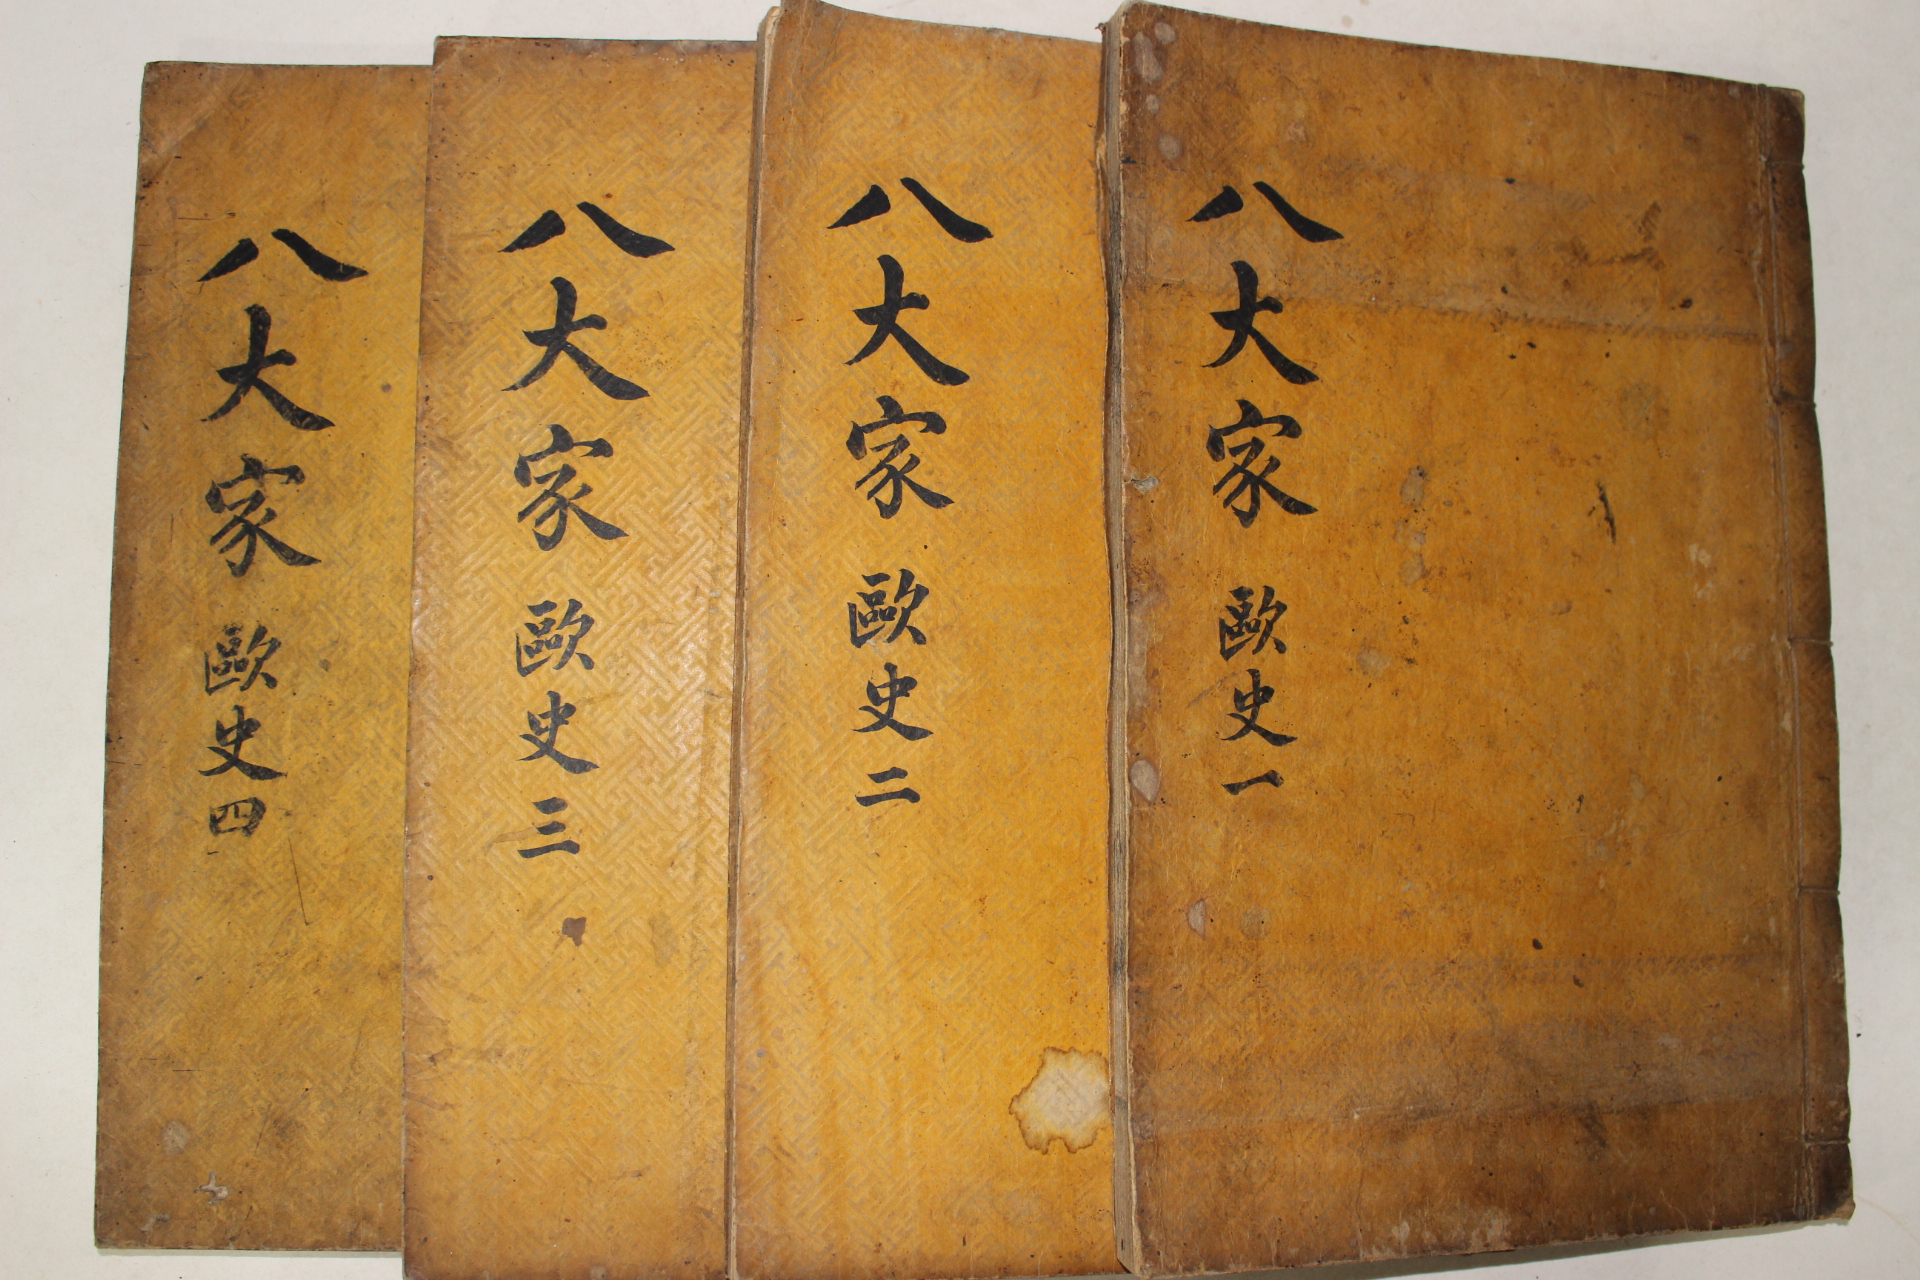 八大家 歐史一
八大家 歐史二
八大家 歐史三
八大家 歐史四